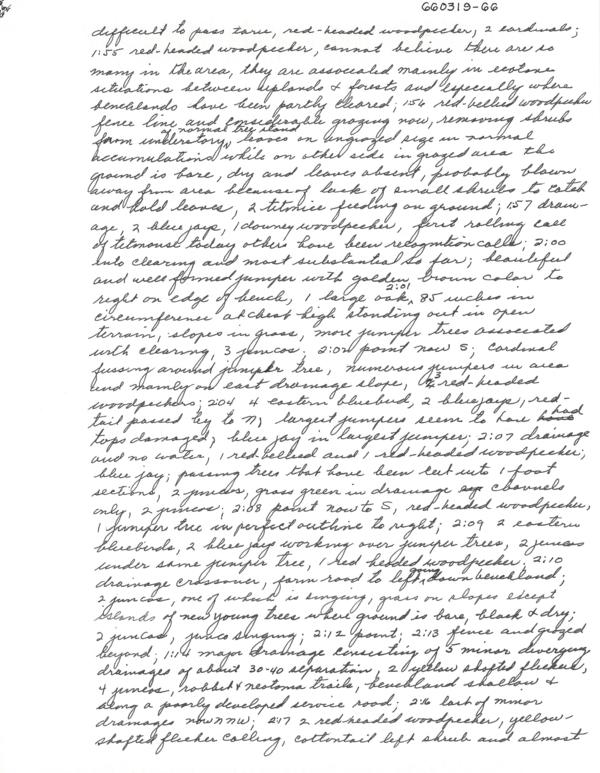 660319-66
difficult to pass thru, red-headed woodpecker, 2 cardinals;
1:55 red-headed woodpecker, cannot believe there are so
many in the area, they are associated mainly in ecotone
situations between uplands & forests and especially where
benchlands have been partly cleared; 1:56 red-bellied woodpecker
fence line and considerable grazing now, removing shrubs
from understory, of normal tree stand leaves on ungrazed side in normal
accumulations while on other side in grazed area the
ground is bare, dry and leaves absent, probably blown
away from area because of lack of small shrubs to catch
and hold leaves, 2 titmice feeding on ground; 1:57 drain-
age, 2 blue jays, 1 downey woodpecker, first rolling call
of titmouse today others have been recognition calls; 2:00
into clearing and most substantial so far; beautiful
and well formed juniper with golden brown color to
right on edge of bench, 1 large oak, 2:01 85 inches in
circumference at chest high standing out in open
terrain, slopes in grass, more juniper trees associated
with clearing, 3 juncos; 2:02 point now S; cardinal
fussing around juniper tree, numerous junipers in area
and mainly on east drainage slope, 3 red-headed
woodpeckers; 2:04 4 eastern bluebird, 2 blue jays, red-
tail passed by to N; largest junipers seem to have had
tops damaged; blue jay in largest juniper; 2:07 drainage
and no water, 1 red-bellied and 1 red-headed woodpecker;
blue jay; passing trees that have been cut into 1 foot
sections, 2 juncos, grass green in drainage channels
only, 2 juncos; 2:08 point now to S, red-headed woodpecker,
1 juniper tree in perfect outline to right; 2:09 2 eastern
bluebirds, 2 blue jays working over juniper trees, 2 juncos
under same juniper tree, 1 red headed woodpecker; 2:10
drainage crossover, farm road to left, going down benchland;
2 juncos, one of which is singing, grass on slopes except
islands of new young trees where ground is bare, black & dry;
2 juncos, junco singing; 2:12 point; 2:13 fence and grazed
beyond; 1:14 major drainage consisting of 5 minor diverging
drainages of about 30-40 separation, 2 yellow shafted flickers,
4 juncos, rabbit & neotoma trails, benchland shallow &
along a poorly developed service road; 2:16 last of minor
drainages now NNW; 2:17 2 red headed woodpecker, yellow-
shafted flicker calling, cottontail left shrub and almost